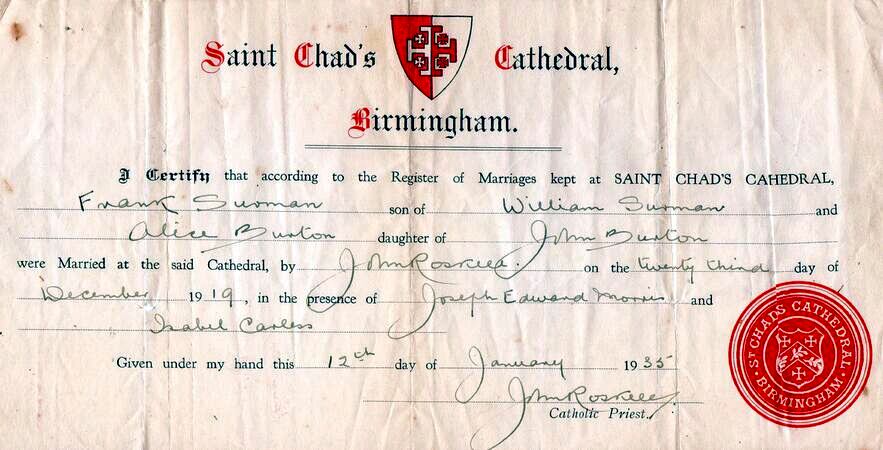 Saint Chad's Cathedral,
Birmingham.
I Certify that according to the Register of Marriages kept at SAINT CHAD'S CAHEDRAL,
Frank Surman son of William Surman and
Alice Burton daughter of John Burton
were Married at the said Cathedral, by John Roskell. on the twenty third day of
December 1919, in the presence of Joseph Edward Morris and
Isabel Carless
Given under my hand this 12th day of January 1935
John Roskell
Catholic Priest.
ST CHADS CATHEDRAL · BIRMINGHAM ·